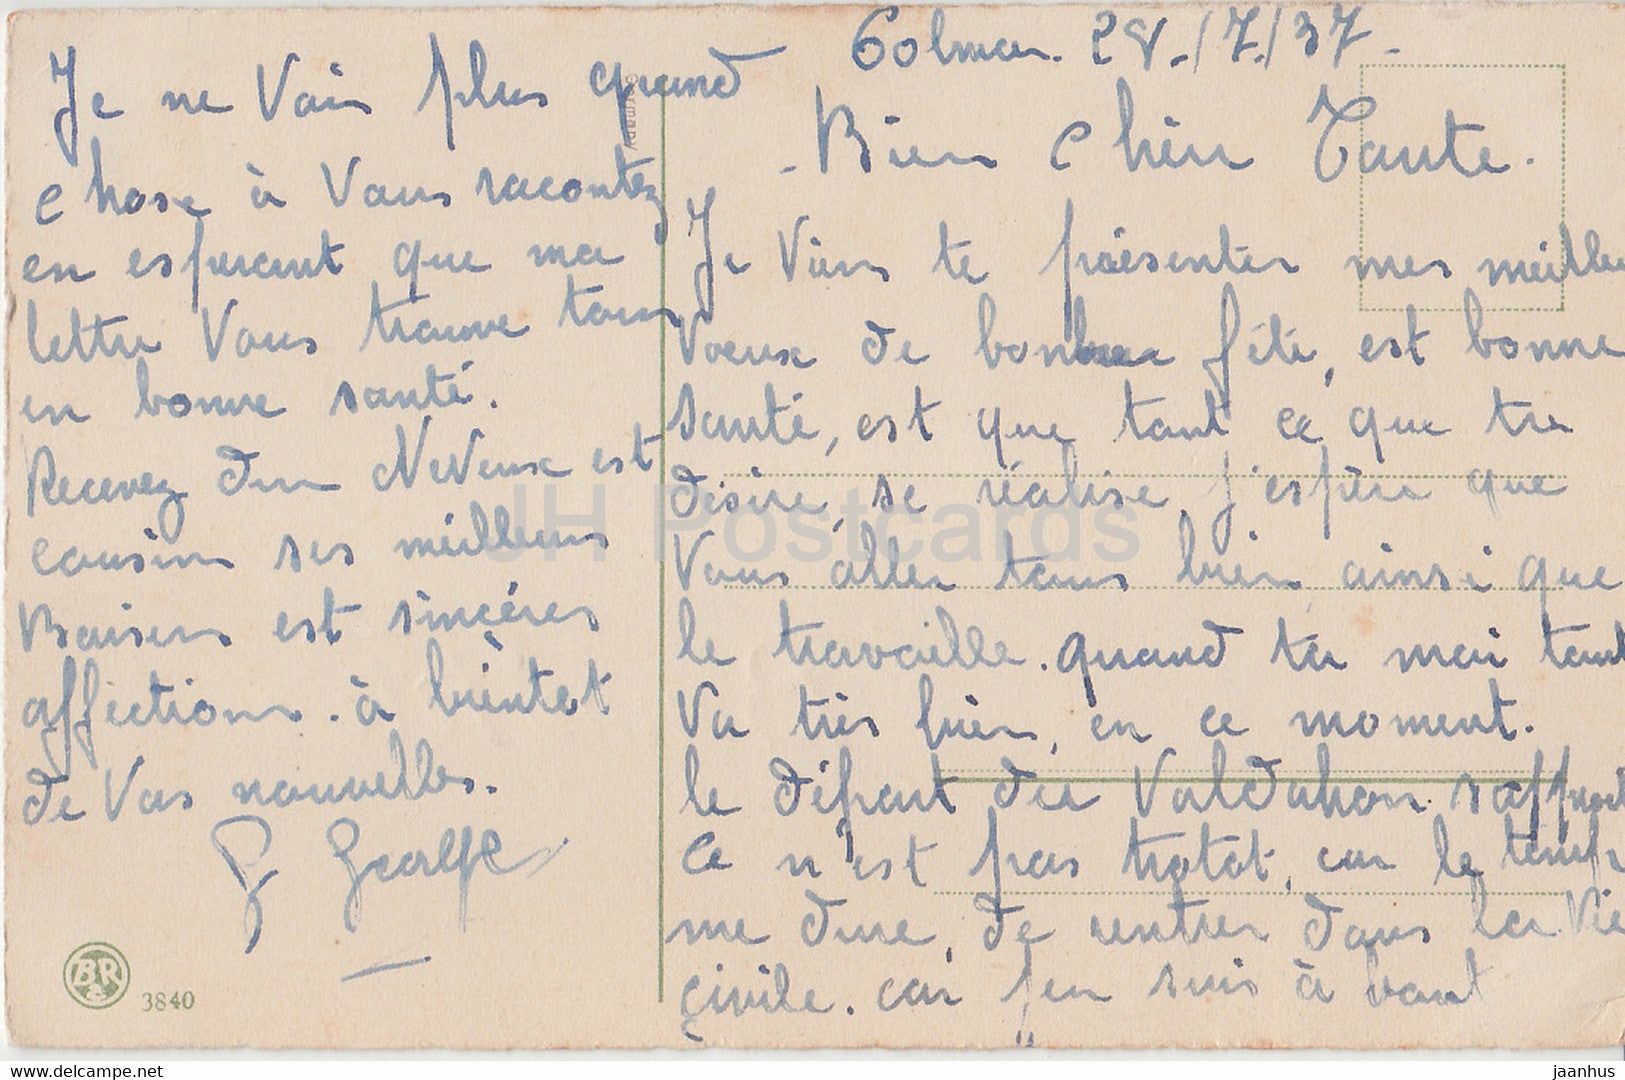 Colmar. 28./7./37.
- Bien Chère Tante.
Je Viens te présenter mes meilleu
Voeux de bonne fête, est bonne
santé, est que tant ce que tu
désire, se réalise, j'espère que
Vous aller tous bien ainsi que
le travaille. quand ta moi tant
Va très bien, en ce moment.
le départ de Valdahon s'approt
Ce n'est pas trotot, car le temp
me dure, de rentrer dans la Vie
civile. car j'en suis à vant
Je ne Vois plus grand
Chose à Vous racontez
en esperant que ma
lettre Vous trouve tous
en bonne santé.
Recevez d'un NeVeux est
cousin ses meilleurs
Baisers est sincéres
affections. à bientot
de Vos nouvelles.
Germany
BR
3840
JH Postcards
www.delcampe.net
jaanhus